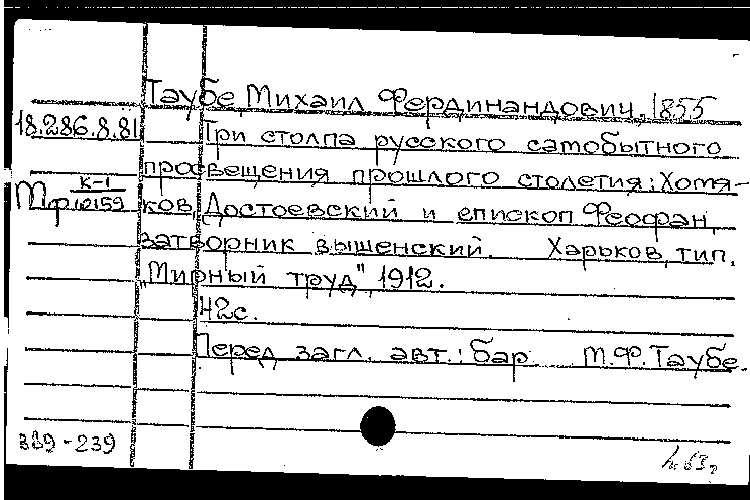 Таубе, Михаил Фердинандович, 1855
18.286.8.81 Три столпа русского самобытного
просвещения прошлого столетия: Хомя-
Мф К-1/10159 ков, Достоевский и епископ Феофан,
затворник вышенский. Харьков, тип.
„Мирный труд", 1912.
42с.
Перед загл. авт.: бар М.Ф. Таубе.
389-239